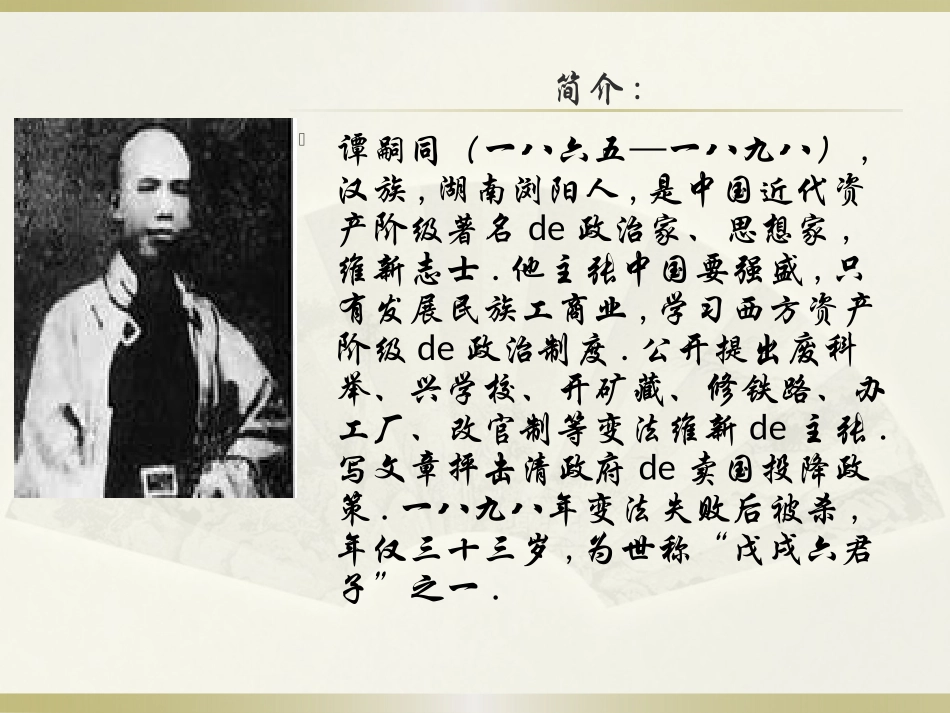 简介：
谭嗣同（一八六五—一八九八），
汉族，湖南浏阳人，是中国近代资
产阶级著名 de 政治家、思想家，
维新志士．他主张中国要强盛，只
有发展民族工商业，学习西方资产
阶级 de 政治制度．公开提出废科
举、兴学校、开矿藏、修铁路、办
工厂、改官制等变法维新 de 主张．
写文章抨击清政府 de 卖国投降政
策．一八九八年变法失败后被杀，
年仅三十三岁，为世称“戊戌六君
子”之一．